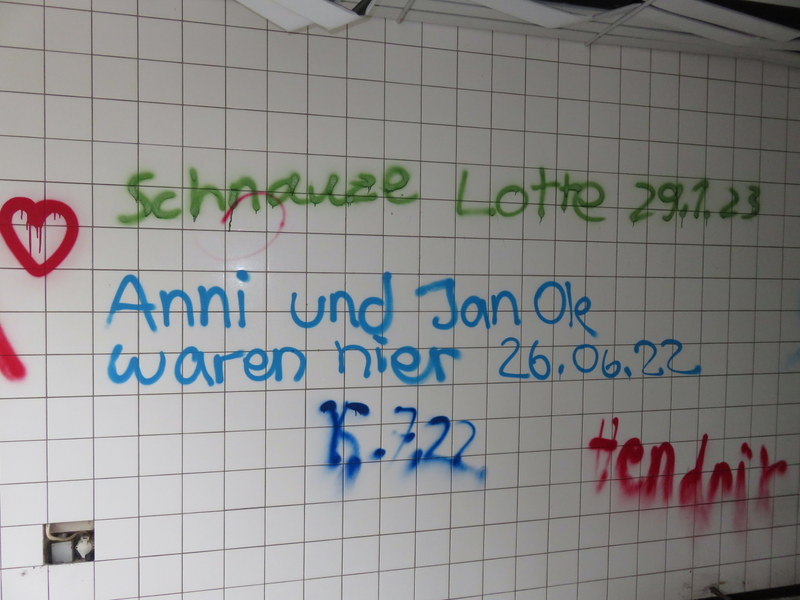 Schnauze Lotte 29.1.23
Anni und Jan Ole
waren hier 26.06.22
15.7.22